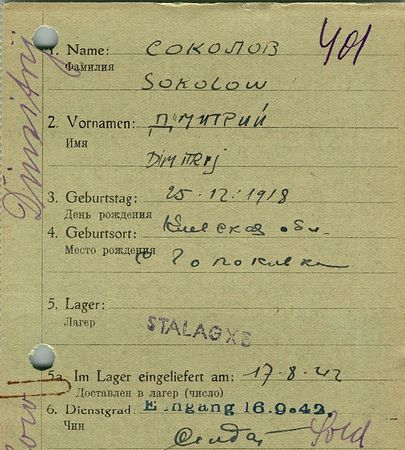 401
1. Name: СОКОЛОВ
Фамилия
SOKOLOW
2. Vornamen: ДМИТРИЙ
Имя
Dimitrij
3. Geburtstag: 25.12.1918
День рождения
4. Geburtsort: Киевская обл.
Место рождения
5. Lager:
Лагер
STALAG XB
5a. Im Lager eingeliefert am: 17.8.42
Доставлен в лагер (число)
6. Dienstgrad: Eingang 16.9.42.
Чин Солдат Sold
Dimitrij